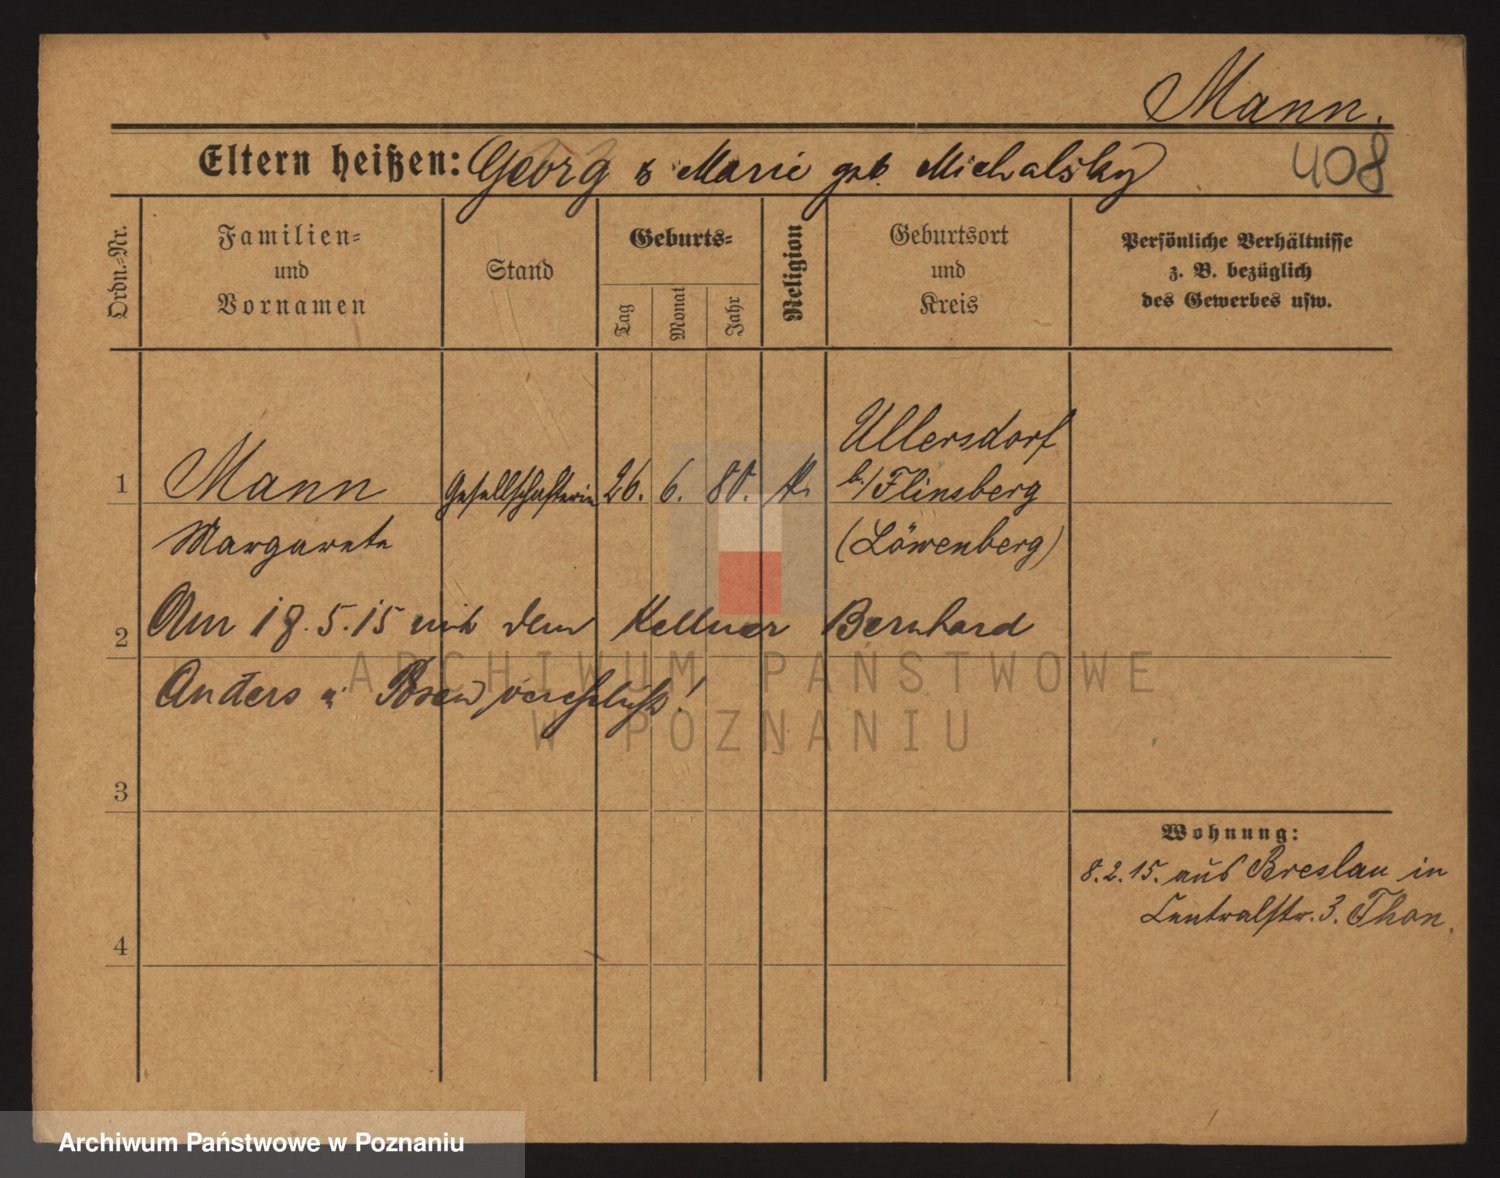 Mann.
Eltern heißen: Georg & Marie geb. Michalsky
408
Ordn.-Nr.
Familien-
und
Vornamen
Stand
Geburts-
Tag
Monat
Jahr
Religion
Geburtsort
und
Kreis
Persönliche Verhältnisse
z. B. bezüglich
des Gewerbes usw.
1
Mann
Gesellschafterin
26. 6. 80.
k.
Ullersdorf
b./Flinsberg
(Löwenberg)
Margarete
2
Am 18.5.15 mit dem Kellner Bernhard
Anders in Posen
3
4
Wohnung:
8.2.15. aus Breslau in
Centralstr. 3.
ARCHIWUM PAŃSTWOWE
W POZNANIU
Archiwum Państwowe w Poznaniu